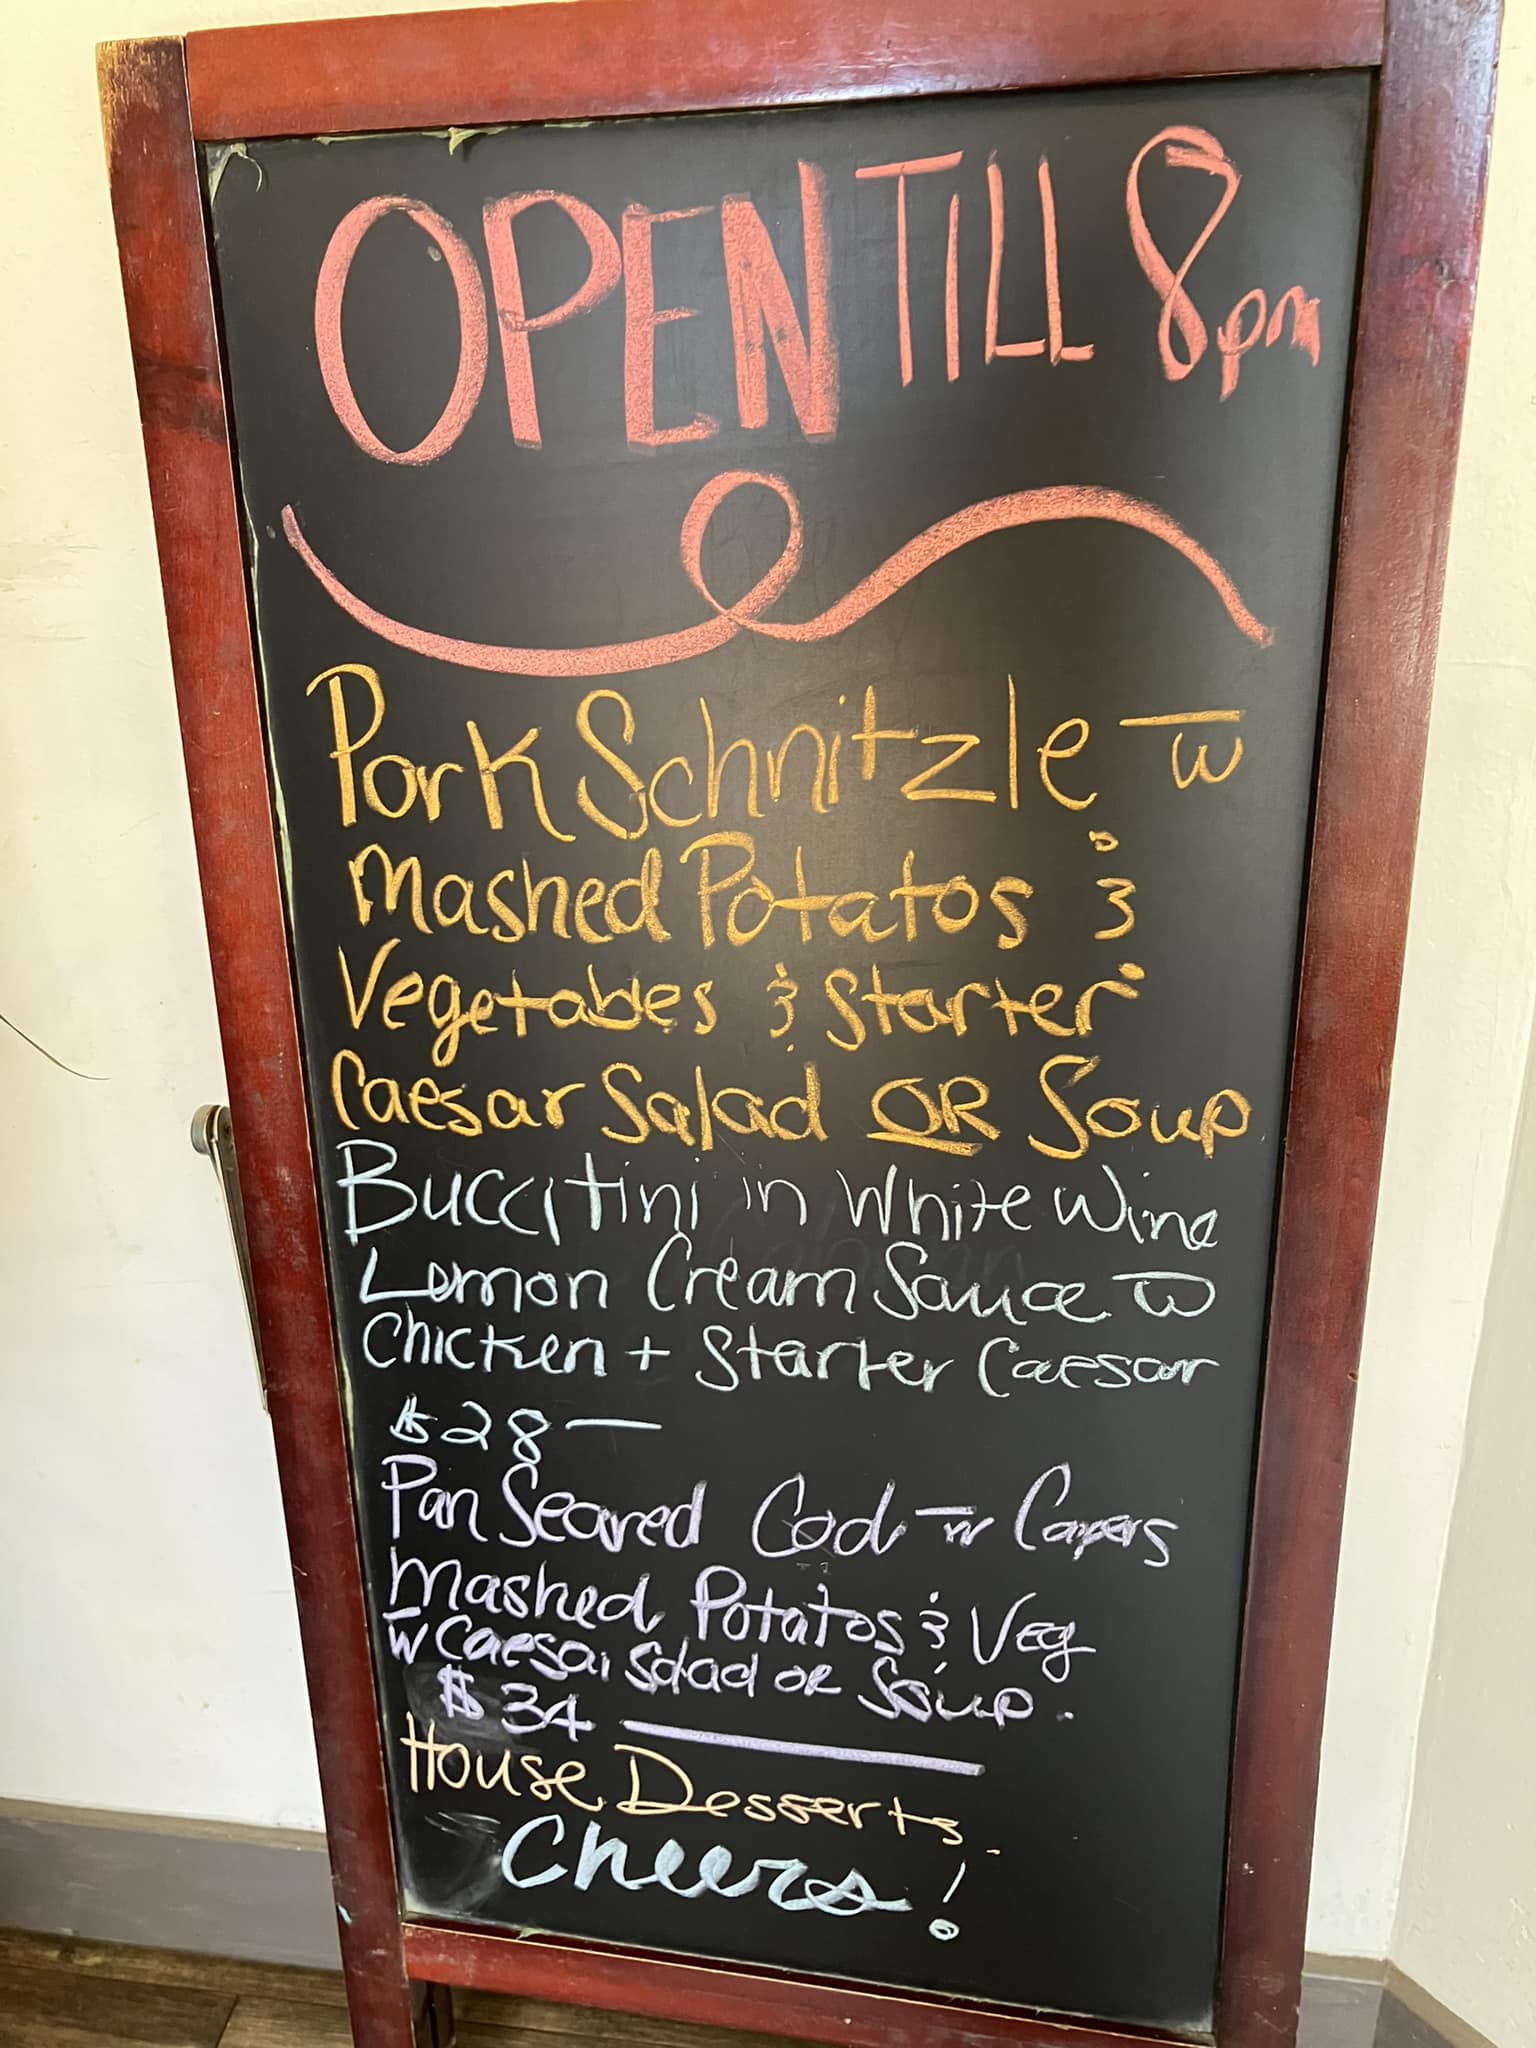 OPEN TILL 8pm
Pork Schnitzle w̅
Mashed Potatos &
Vegetables & Starter
Caesar Salad OR Soup
Buccitini in White Wine
Lemon Cream Sauce w̅
Chicken + Starter Caesar
$28—
Pan Seared Cod w̅ Capers
Mashed Potatos & Veg
w̅ Caesar Salad OR Soup.
$34 —
House Desserts.
Cheers!